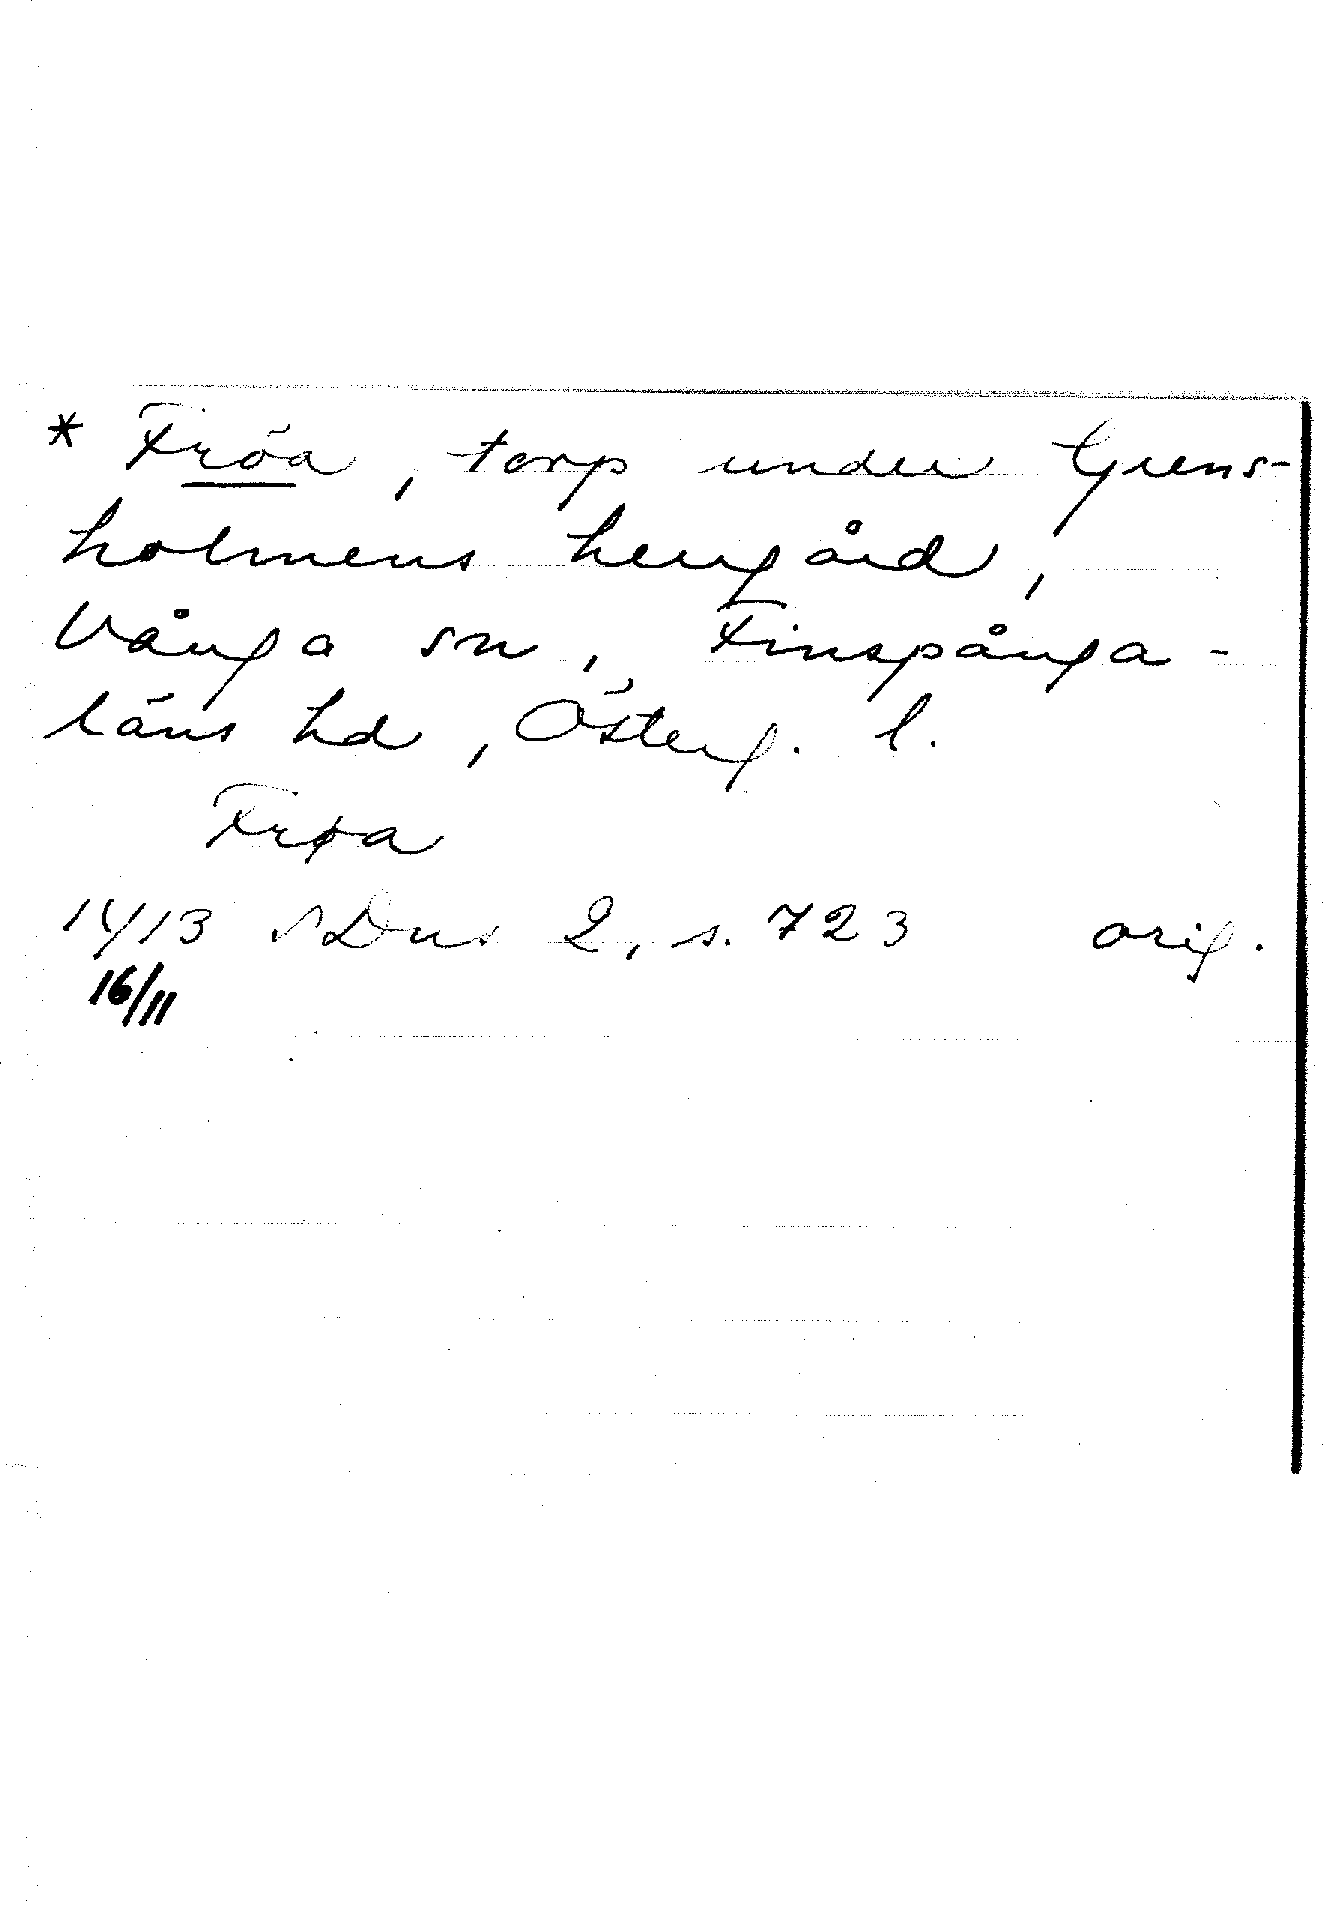 * Fröa, torp under Grens-
holmens herrgård,
Vånga sn, Finspånga-
läns hd, Österg. l.
Frøa
1413 SDns 2, s. 723 orig.
16/11